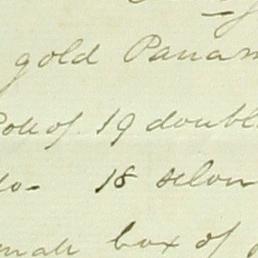 gold Panam
Roll of 19 doubl
do- 18 silon
small box of